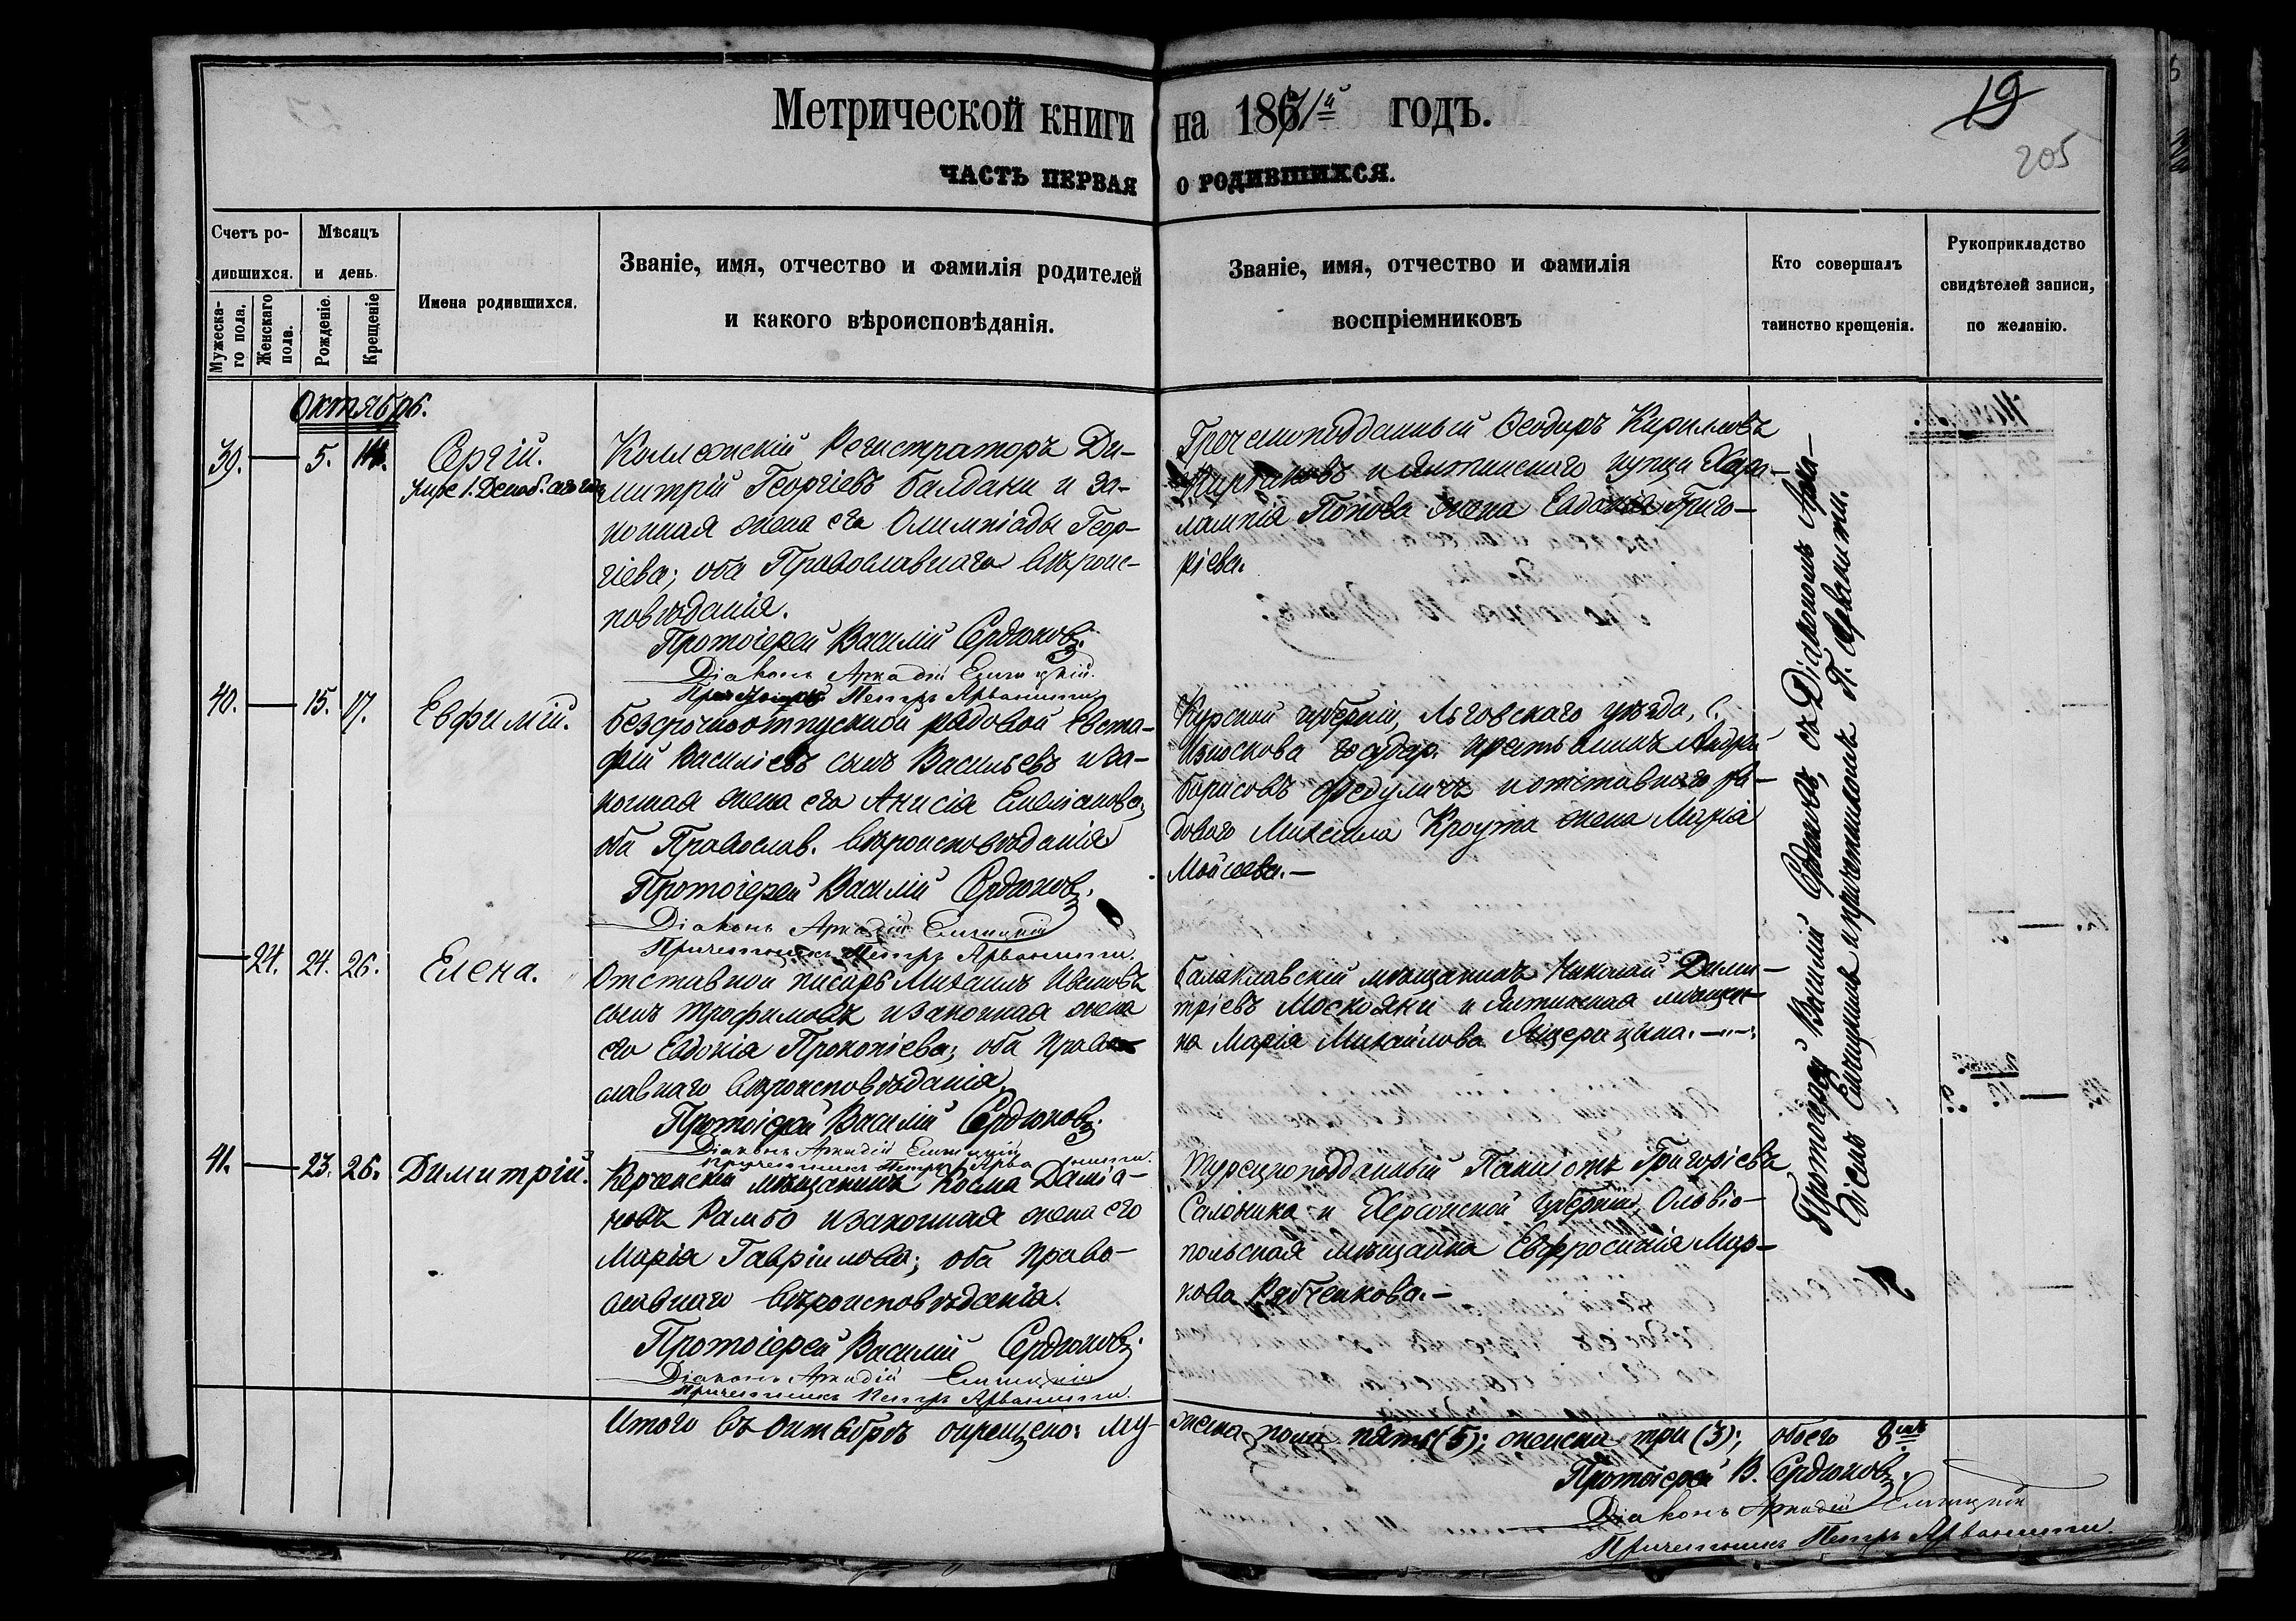 Метрической книги на 1871й годъ.
ЧАСТЬ ПЕРВАЯ О РОДИВШИХСЯ.
19
205
Счетъ ро-
дившихся.
Мужеска-
го пола.
Женскаго
пола.
Мѣсяцъ
и день.
Рожденіе.
Крещеніе
Имена родившихся.
Званіе, имя, отчество и фамилія родителей
и какого вѣроисповѣданія.
Званіе, имя, отчество и фамилія
воспріемниковъ
Кто совершалъ
таинство крещенія.
Рукоприкладство
свидѣтелей записи,
по желанію.
Октябрь.
39. — 5.
Сергій.
Коллежскій Регистраторъ Ди-
митрій Георгіевъ Балдани и за-
конная жена его Олимпіада Геор-
гіева; оба Православнаго вѣроис-
повѣданія.
Протоіерей Василій Сердюковъ.
Діаконъ Аркадій
Причетникъ Петръ Арванити
Греческоподданный Ѳеодоръ Кириловъ
и Ялтинскаго купца Хара-
лампія Попова жена Евдокія Григо-
ріева.
40. — 15. 17.
Евфимій.
Безсрочноотпускной рядовой Евста-
фій Василіевъ сынъ Васильевъ и за-
конная жена его Анисія Емеліанова,
оба Православ. вѣроисповѣданія
Протоіерей Василій Сердюковъ.
Діаконъ Аркадій
Причетникъ Петръ Арванити.
Курской губерніи, Льговскаго уѣзда, с.
государ. крестьянинъ Андрей
Борисовъ и отставнаго ря-
доваго Михаила Кроута жена Марія
Мойсеева. —
— 24. 24. 26.
Елена.
Отставной писарь Михаилъ Ивановъ
сынъ Трофимовъ и законная жена
его Евдокія Прокопіева; оба Право-
славнаго вѣроисповѣданія.
Протоіерей Василій Сердюковъ.
Діаконъ Аркадій
Причетникъ Петръ Арванити.
Балаклавскій мѣщанинъ Николай Дими-
тріевъ Москояни и Ялтинская мѣщан-
ка Марія Михайлова Ящерицина. —
41. — 23. 26.
Димитрій.
Керченскій мѣщанинъ Косма Даміа-
новъ Рамбо и законная жена его
Марія Гавріилова; оба Право-
славнаго вѣроисповѣданія.
Протоіерей Василій Сердюковъ.
Діаконъ Аркадій
Причетникъ Петръ Арванити.
Турецкоподданный Григоріевъ
и Херсонской губерніи, Ольвіо-
польская мѣщанка Евфросинія Мар-
кова Рябченкова. —
Протоіерей Василій Сердюковъ, съ Діакономъ Арка-
діемъ и причетникомъ П. Арванити.
Итого въ Октябрѣ окрещено: му-
жеска пола пять (5); женска три (3); обоего 8мь
Протоіерей В. Сердюковъ.
Діаконъ Аркадій
Причетникъ Петръ Арванити.